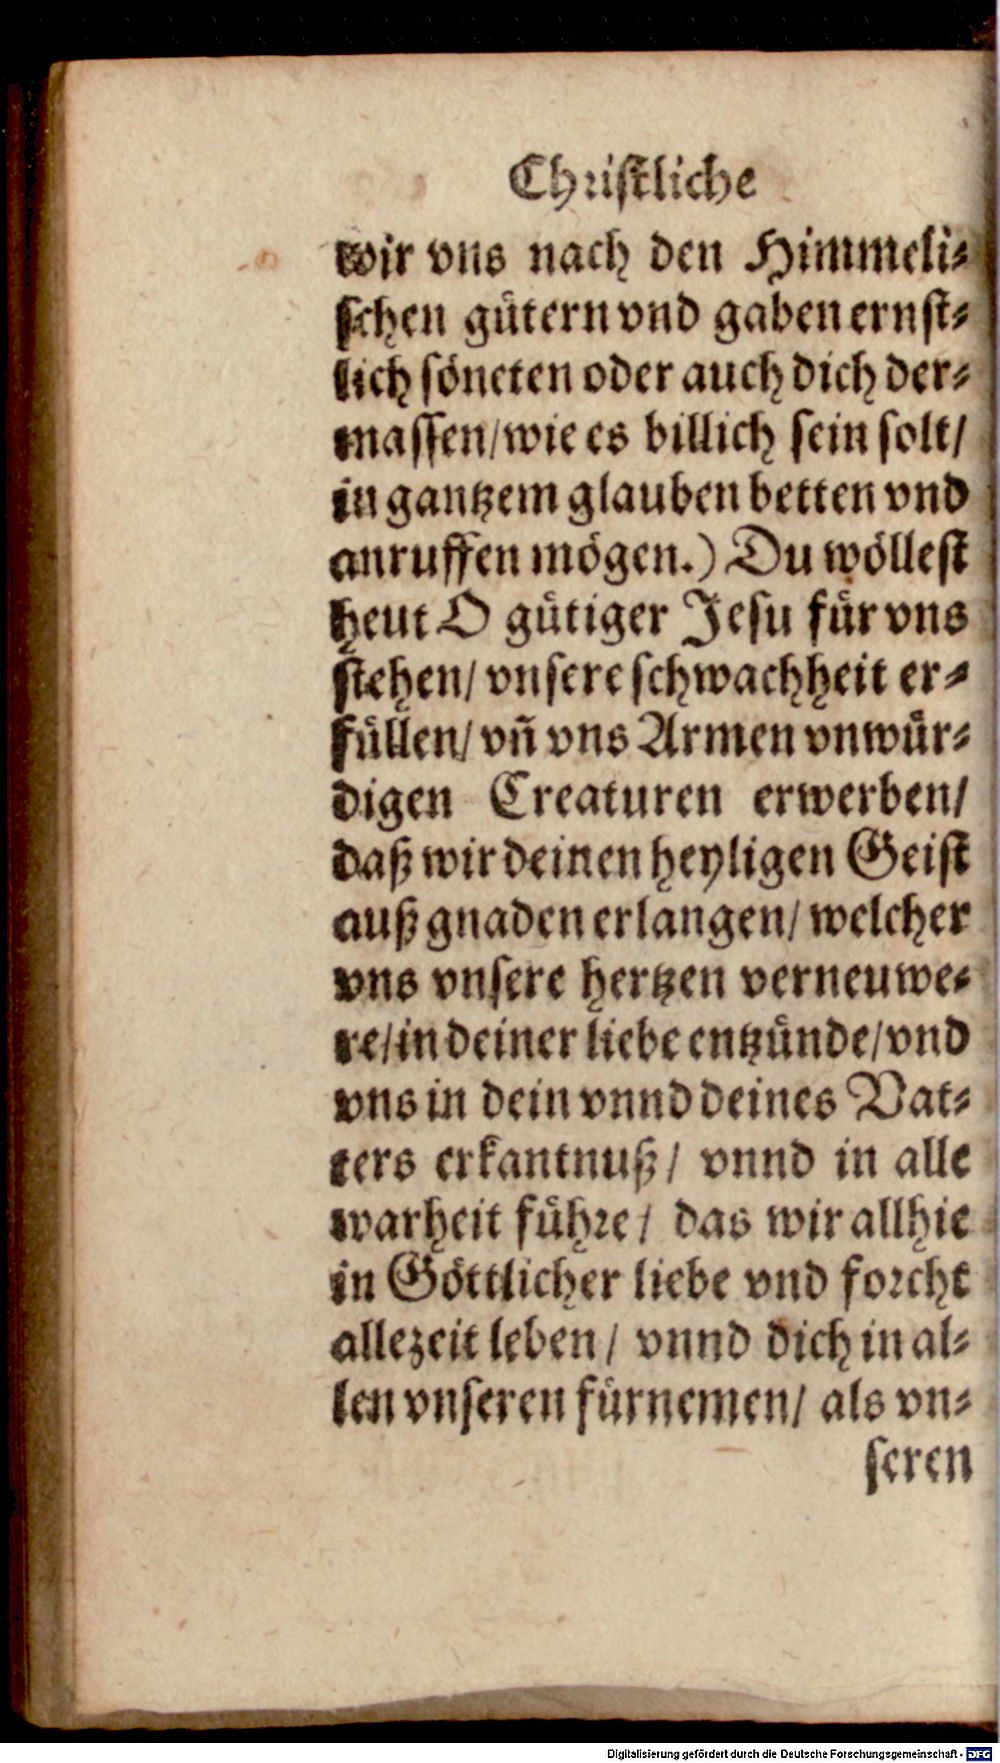 Christliche
wir vns nach den Himmeli⸗
schen guͤtern vnd gaben ernst⸗
lich soͤneten oder auch dich der⸗
massen/ wie es billich sein solt/
in gantzem glauben betten vnd
anruffen moͤgen.) Du woͤllest
heut O guͤtiger Jesu fuͤr vns
stehen/ vnsere schwachheit er⸗
fuͤllen/ vñ vns Armen vnwuͤr⸗
digen Creaturen erwerben/
daß wir deinen heyligen Geist
auß gnaden erlangen/ welcher
vns vnsere hertzen verneuwe⸗
re/ in deiner liebe entzuͤnde/ vnd
vns in dein vnnd deines Vat⸗
ters erkantnuß/ vnnd in alle
warheit fuͤhre/ das wir allhie
in Goͤttlicher liebe vnd forcht
allezeit leben/ vnnd dich in al⸗
len vnseren fuͤrnemen/ als vn⸗
seren
Digitalisierung gefördert durch die Deutsche Forschungsgemeinschaft - DFG